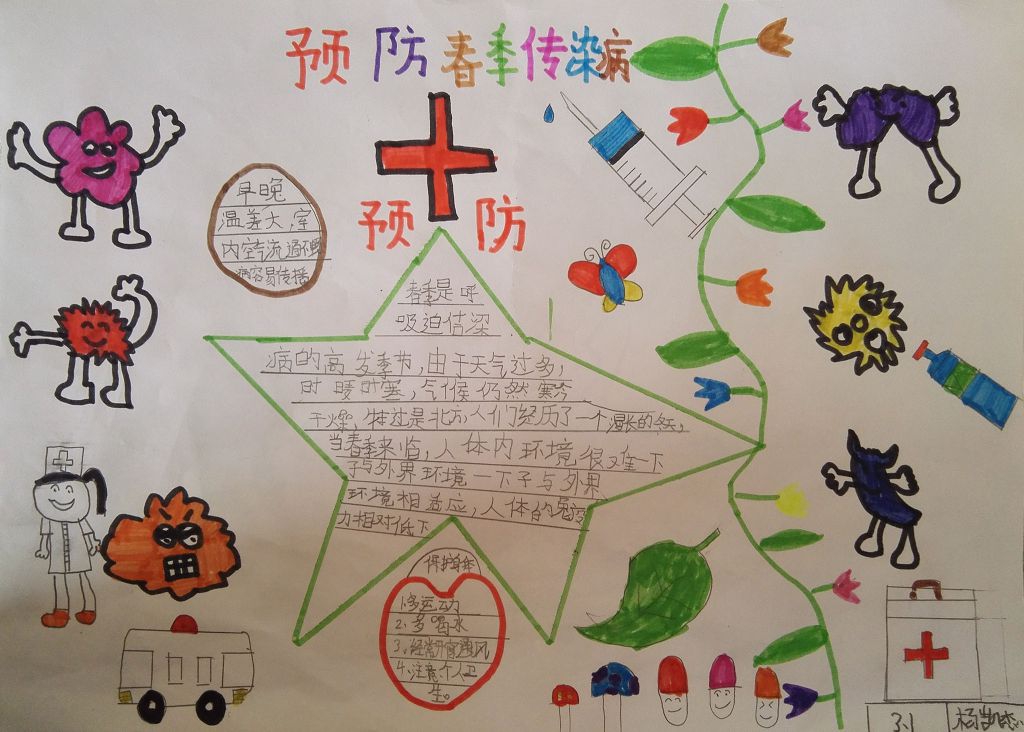 预防春季传染病
预 防
早晚
温差大,室
内空气流通不畅
病容易传播
春季是呼
吸道传染
病的高发季节,由于天气过多,
时暖时寒,气候仍然寒冷
干燥,特过是北方人们经历了一个漫长的冬天,
当春季来临,人体内环境很难一下
子与外界环境一下子与外界
环境相适应,人体的免疫
力相对低下
保护
1.多运动
2、多喝水
3、经常开窗通风
4、注意个人卫
生。
3.1
杨凯杰